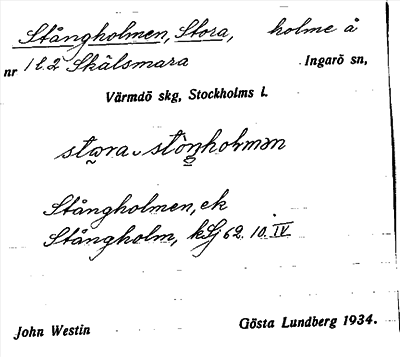 Stångholmen, Stora, holme å
nr 1 l. 2 Skälsmara Ingarö sn,
Värmdö skg, Stockholms l.
stɷra stòŋhoɫmən
Stångholmen, ek
Stångholm, kSj 62. 10. IV
John Westin Gösta Lundberg 1934.